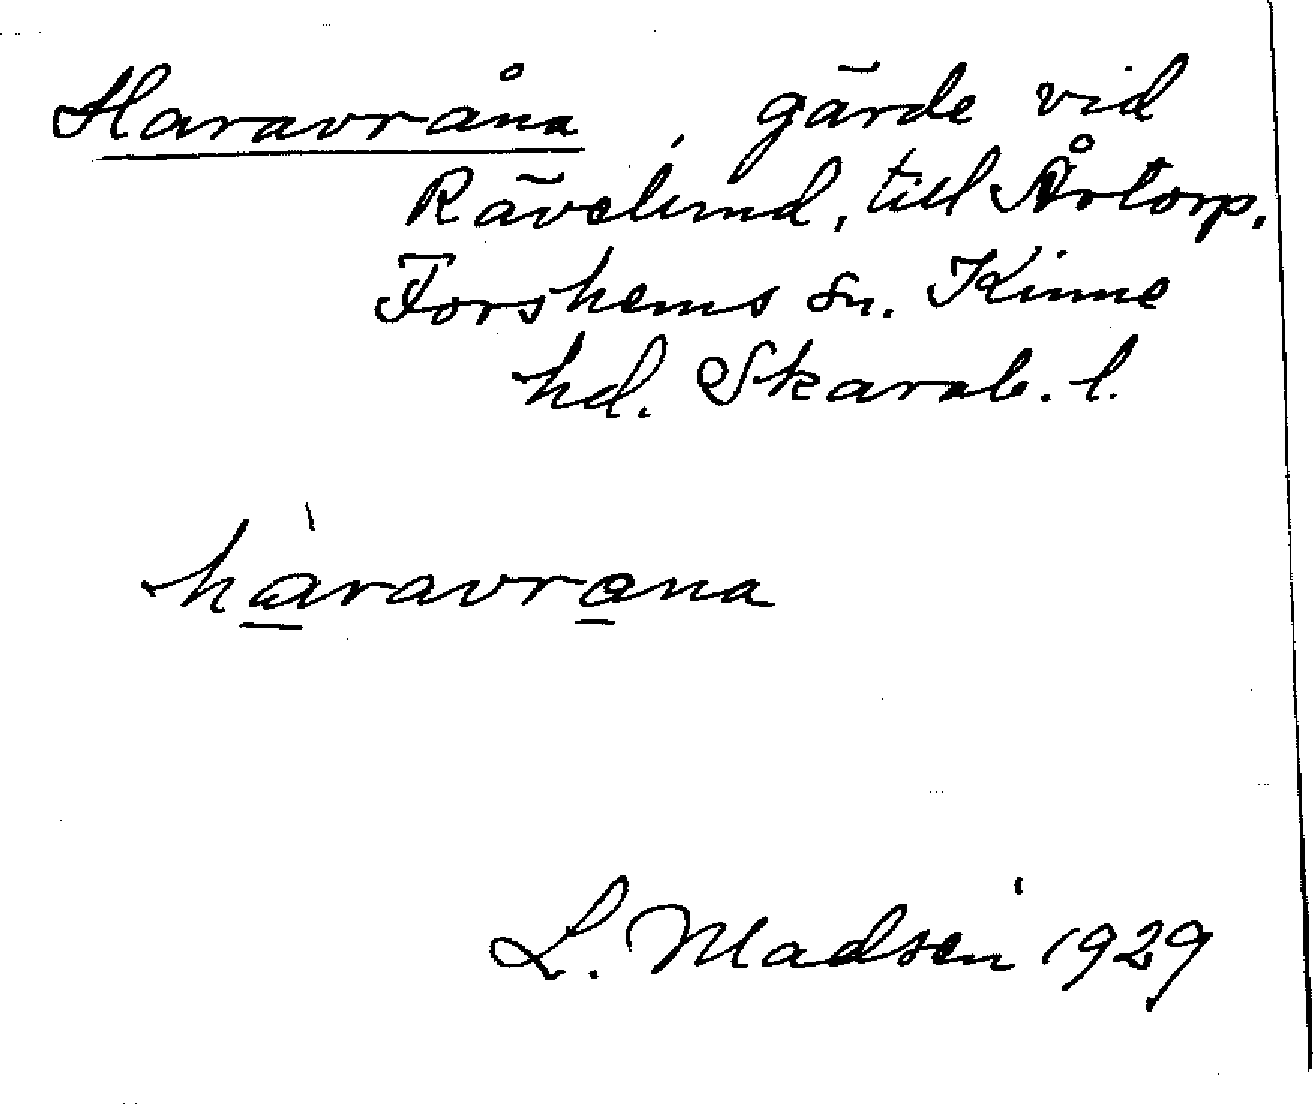 Haravråna, gärde vid
Rävelund, till Årtorp.
Forshems sn. Kinne
hd. Skarab. l.
hàravrana
L. Madsén 1929